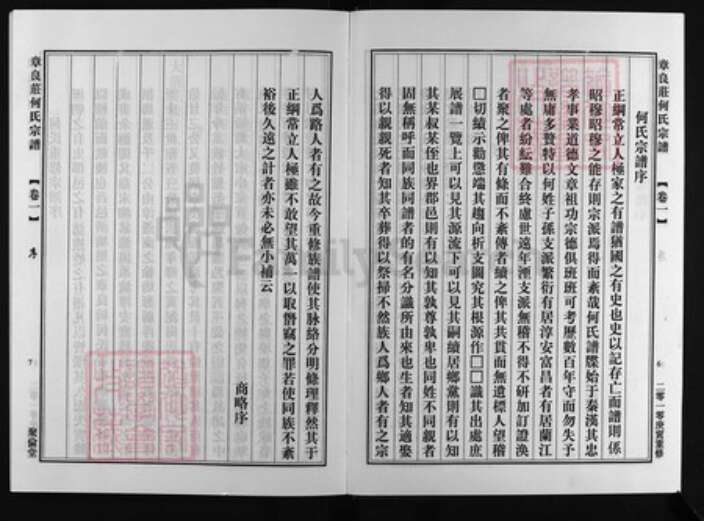 章良莊何氏宗譜
【卷一】
序
6
二零一零庚寅重修
何氏宗譜序
正綱常立人極家之有譜猶國之有史也史以記存亡而譜則係
昭穆昭穆之能存則宗派焉得而紊哉何氏譜牒始于秦漢其忠
孝事業道德文章祖功宗德俱班班可考歷數百年守而勿失予
無庸多贅特以何姓子孫支派繁衍有居淳安富昌者有居蘭江
等處者紛紜雖合終慮世遠年湮支派無稽不得不研加訂證渙
者聚之俾其有條而不紊傳者續之俾其共貫而無遺標人望稽
□切績示勸懲端其趨向析支圖究其根源作□□識其出處庶
展譜一覽上可以見其源流下可以見其嗣續居鄉黨則有以知
其某叔某侄也界郡邑則有以知其孰尊孰卑也同姓不同親者
固無稱呼而同族同譜者的有名分識所由來也生者知其適娶
得以親親死者知其卒葬得以祭掃不然族人爲鄉人者有之宗
人爲路人者有之故今重修族譜使其脉絡分明條理釋然其于
正綱常立人極雖不敢望其萬一以取僭竊之罪若使同族不紊
裕後久遠之計者亦未必無小補云
商略序
章良莊何氏宗譜
【卷一】
序
7
聚倫堂